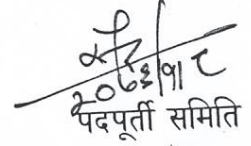 २०७६।१।८
पदपूर्ती समिति